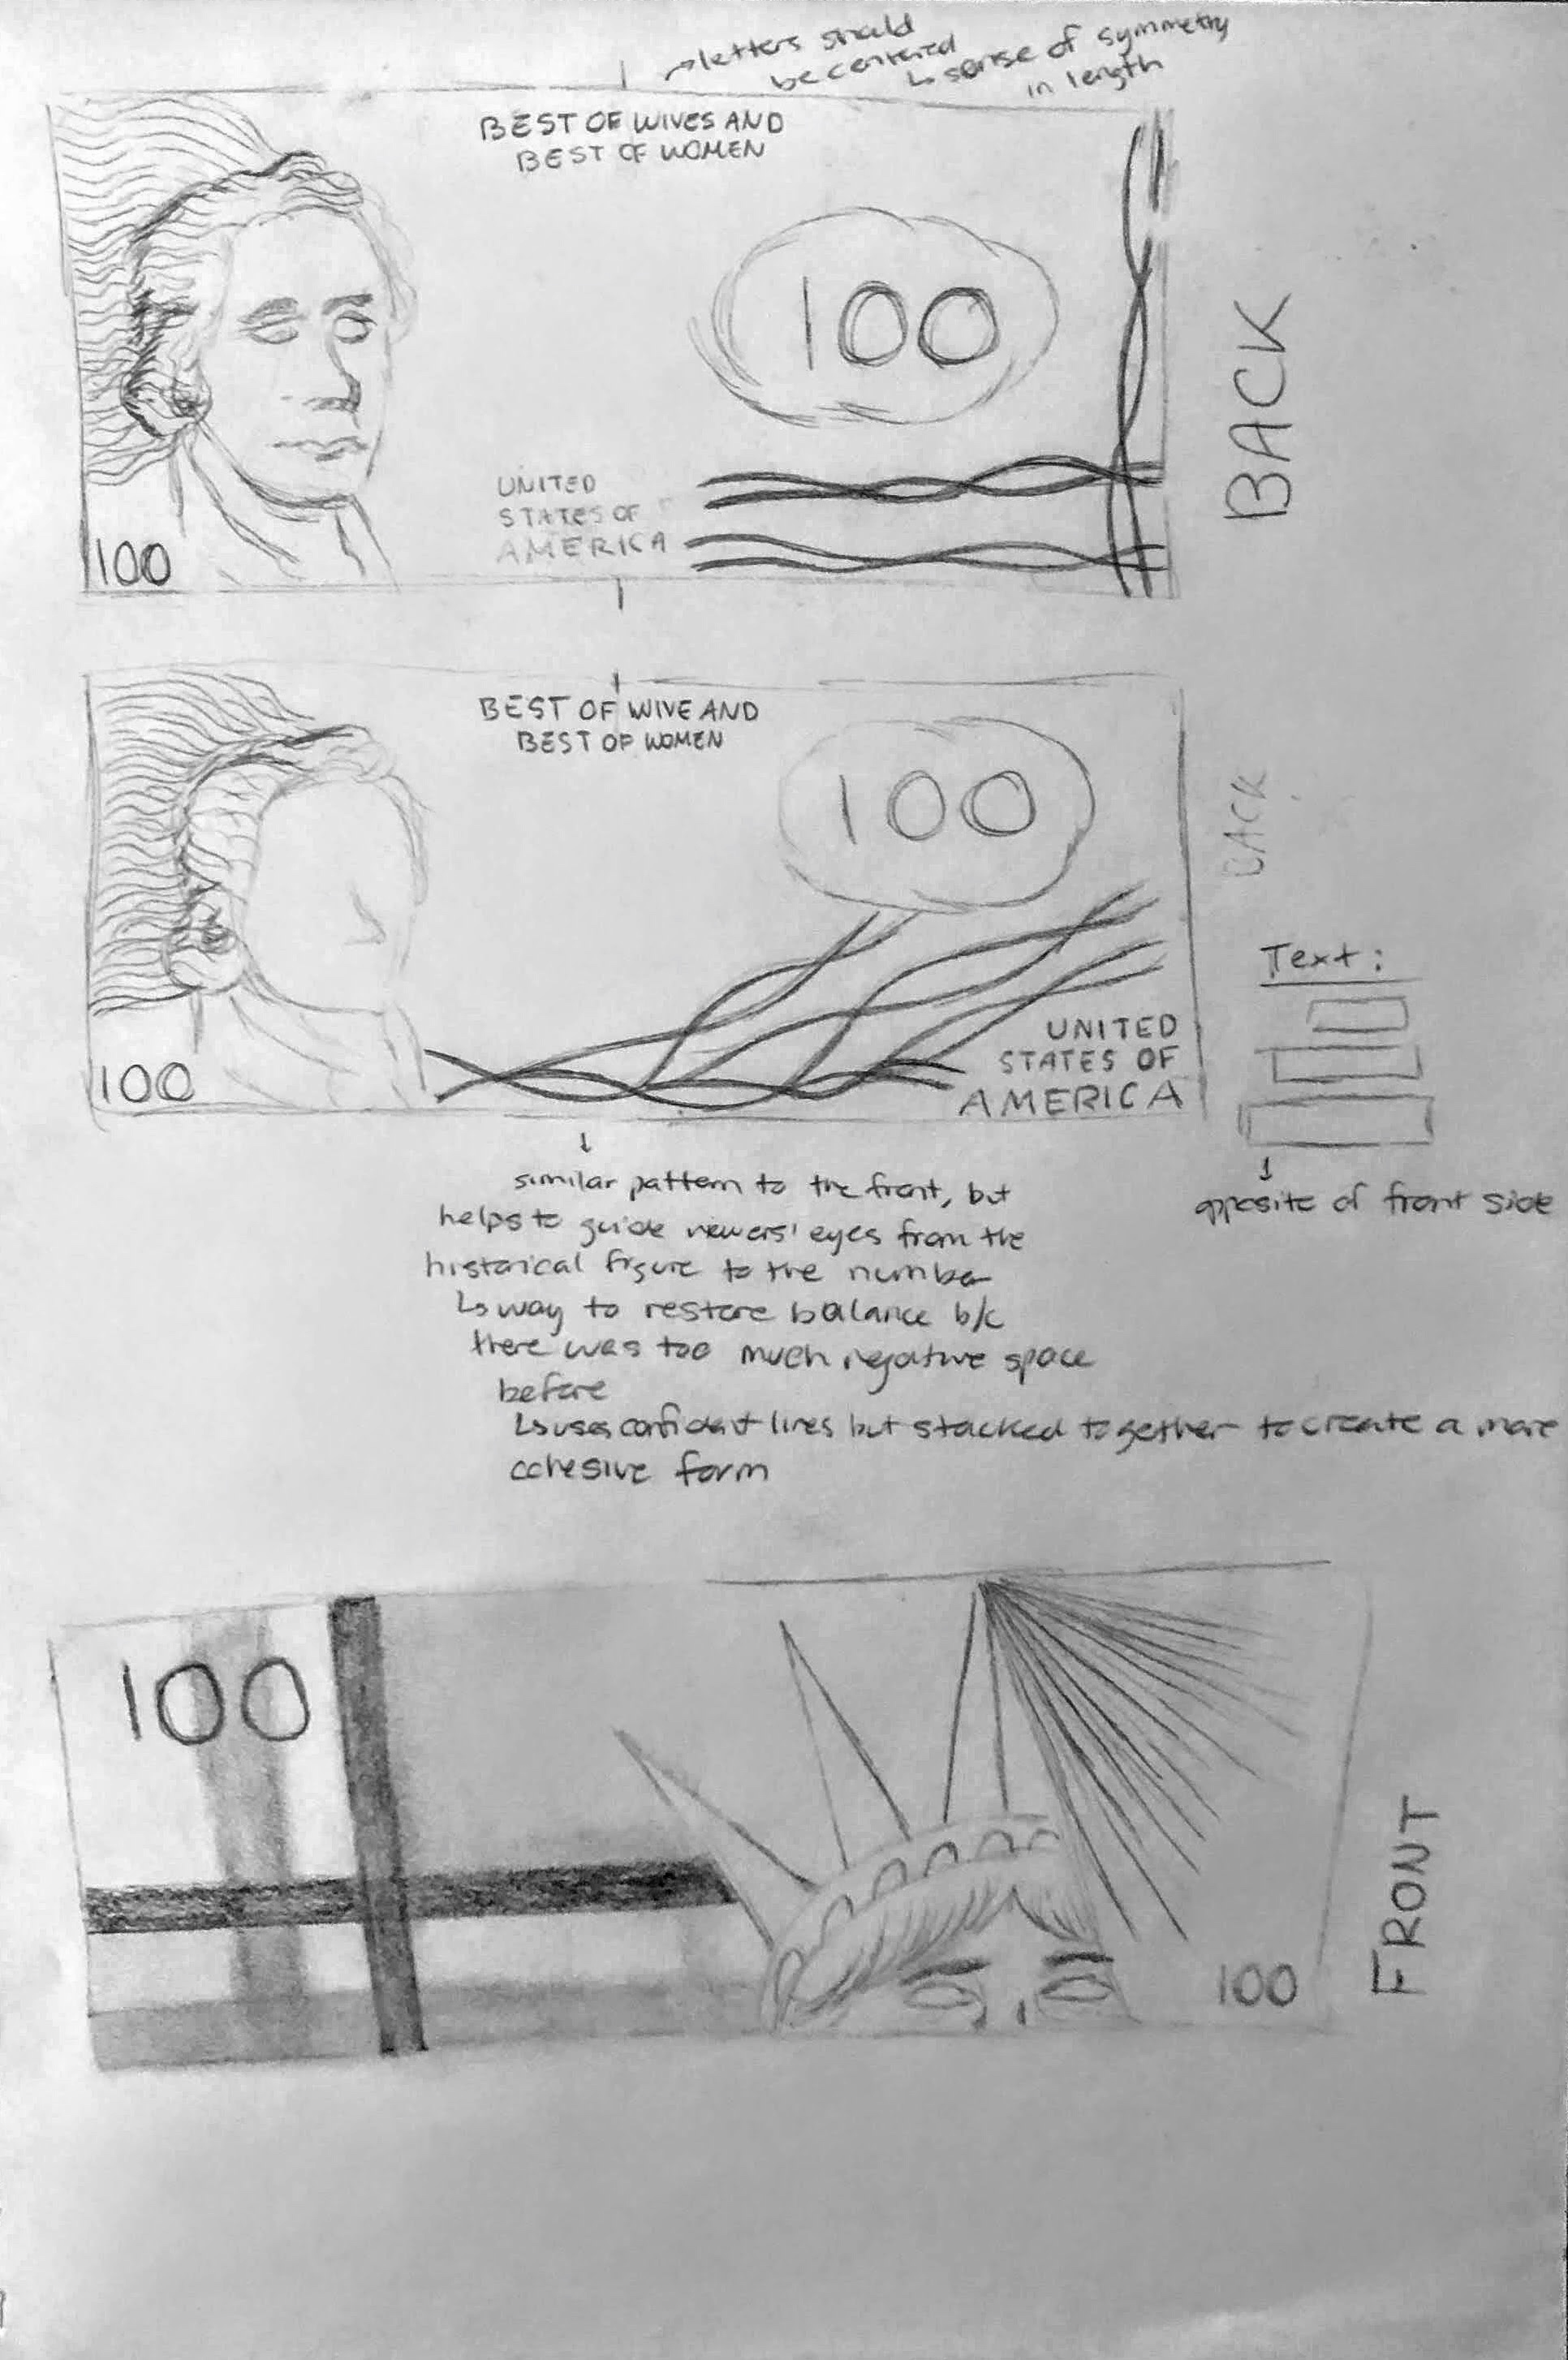 →letters should
be centered
↳ sense of symmetry
in length
BEST OF WIVES AND
BEST OF WOMEN
100
UNITED
STATES OF
AMERICA
100
BACK
BEST OF WIVE AND
BEST OF WOMEN
100
UNITED
STATES OF
AMERICA
100
BACK
Text:
↓
opposite of front side
↓
similar pattern to the front, but
helps to guide viewers' eyes from the
historical figure to the number
↳ way to restore balance b/c
there was too much negative space
before
↳ uses confident lines but stacked together to create a more
cohesive form
100
100
FRONT